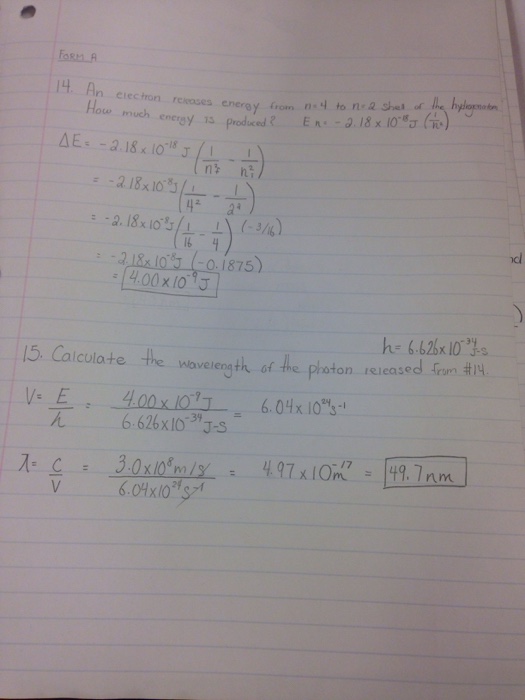 FORM A
14. An electron releases energy from n=4 to n=2 shell of the hydrogen
How much energy is produced? En = -2.18 x 10⁻¹⁸ J (1/n²)
ΔE = -2.18 x 10⁻¹⁸ J (1/n² - 1/n²)
= -2.18x10⁻⁸J (1/4² - 1/2²)
= -2.18x10⁻⁸J (1/16 - 1/4) (-3/16)
= -2.18x10⁻⁸J (-0.1875)
= 4.00x10⁻⁹ J
h= 6.626x10⁻³⁴ J-s
15. Calculate the wavelength of the photon released from #14.
V= E/h = 4.00x10⁻⁹J / 6.626x10⁻³⁴ J-S = 6.04x10²⁴s⁻¹
λ= C/V = 3.0x10⁸m/s / 6.04x10²⁴s⁻¹ = 4.97x10⁻¹⁷m = 49.7nm